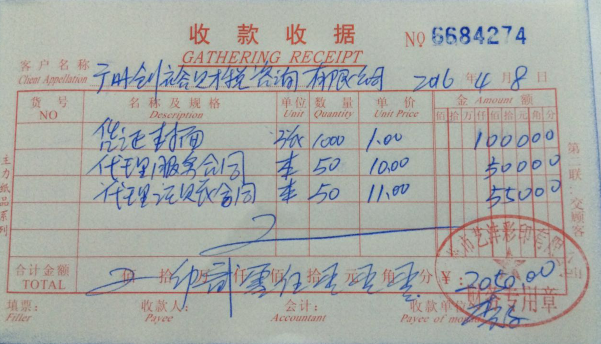 收款收据
GATHERING RECEIPT
NO 6684274
客户名称
Client Appellation
财税咨询有限公司 2016年4月8日
货号 名称及规格 单位 数量 单价 金 Amount 额
NO Description Unit Quantity Unit Price 佰 拾 万 仟 佰 拾 元 角 分
凭证封面 张 1000 1.00 100000
代理服务合同 本 50 10.00 50000
代理记账合同 本 50 11.00 55000
合计金额 佰 拾 万 仟 佰 拾 元 角 分 ¥: 2050.00
TOTAL
填票: 收款人: 会计: 收款单位
Filler Payee Accountant Payee of
主力纸品系列
第二联:交顾客
艺洋彩印
专用章